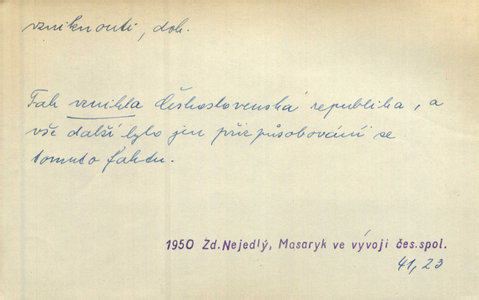 vzniknouti, dok.
Tak vznikla Československá republika, a
vše další bylo jen přizpůsobování se
tomuto faktu.
1950 Zd. Nejedlý, Masaryk ve vývoji čes. spol.
41, 23